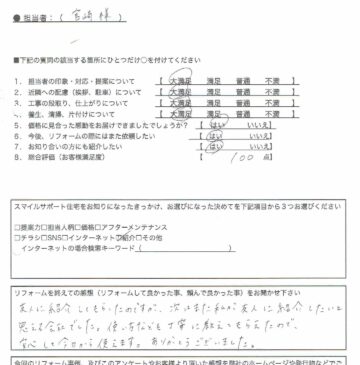 ●担当者：（ 宮崎 様 ）
■下記の質問の該当する箇所にひとつだけ○を付けてください
1．担当者の印象・対応・提案について 【 大満足 満足 普通 不満 】
2．近隣への配慮（挨拶、駐車）について 【 大満足 満足 普通 不満 】
3．工事の段取り、仕上がりについて 【 大満足 満足 普通 不満 】
、養生、清掃、片付けについて 【 大満足 満足 普通 不満 】
5．価格に見合った感動をお届けできましたでしょうか？ 【 はい いいえ】
6．今後、リフォームの際にはまた依頼したい 【 はい いいえ】
7．お知り合いの方にも紹介したい 【 はい いいえ】
8．総合評価（お客様満足度） 【 100 点】
スマイルサポート住宅をお知りになったきっかけ、お選びになった決めてを下記項目から３つお選びください
□提案力□担当人柄□価格□アフターメンテナンス
□チラシ□SNS□インターネット☑紹介□その他
インターネットの場合検索キーワード（ ）
リフォームを終えての感想（リフォームして良かった事、頼んで良かった事）をお聞かせ下さい
友人に紹介してもらったのですが、次はまた私が友人に紹介したいと
思える会社でした。使い方なども丁寧に教えてもらえたので、
安心して今日から使えます。ありがとうございました。
今回のリフォーム事例、及びこのアンケートやお客様より頂いた感想を弊社のホームページや発行物などでご